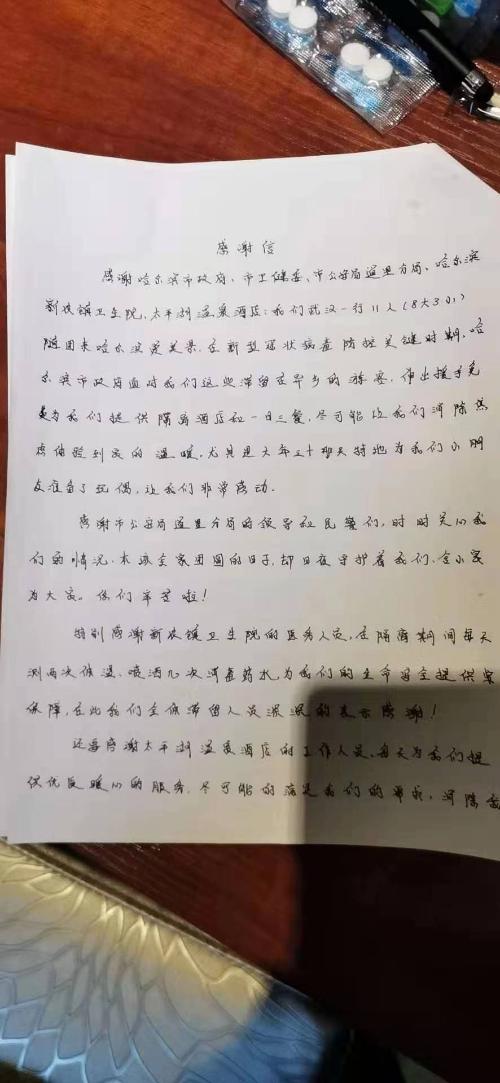 感谢信
感谢哈尔滨市政府、市卫健委、市公安局道里分局、哈尔滨
新农镇卫生院、太平湖温泉酒店:我们武汉一行11人(8大3小)
随团来哈尔滨看美景,在新型冠状病毒防控关键时期,哈
尔滨市政府面对我们这些滞留在异乡的旅客,伸出援手免
费为我们提供隔离酒店和一日三餐,尽可能让我们消除焦
虑体验到家的温暖,尤其是大年三十那天特地为我们小朋
友准备了玩偶,让我们非常感动.
感谢市公安局道里分局的领导和民警们,时时关心我
们的情况,本该全家团圆的日子,却日夜守护着我们,舍小家
为大家。你们辛苦啦!
特别感谢新农镇卫生院的医务人员,在隔离期间每天
测两次体温、喷洒几次消毒药水,为我们的生命安全提供
保障,在此我们全体滞留人员深深的表示感谢!
还要感谢太平湖温泉酒店的工作人员,每天为我们提
供优质暖心的服务,尽可能的满足我们的需求,消除我